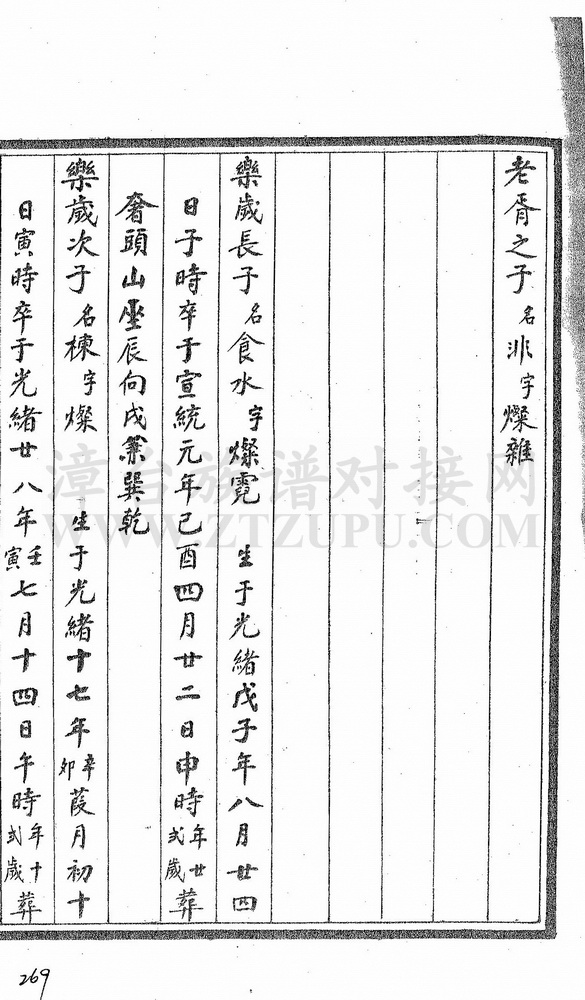 老胥之子名兆字燦雜
樂歲長子名食水字燦霓 生于光緒戊子年八月廿四
日子時卒于宣統元年己酉四月廿二日申時年廿弍歲葬
奢頭山坐辰向戌兼巽乾
樂歲次子名棟字燦 生于光緒十七年辛卯葭月初十
日寅時卒于光緒廿八年壬寅七月十四日午時年十弍歲葬
漳台族谱对接网
WWW.ZTZUPU.COM
269